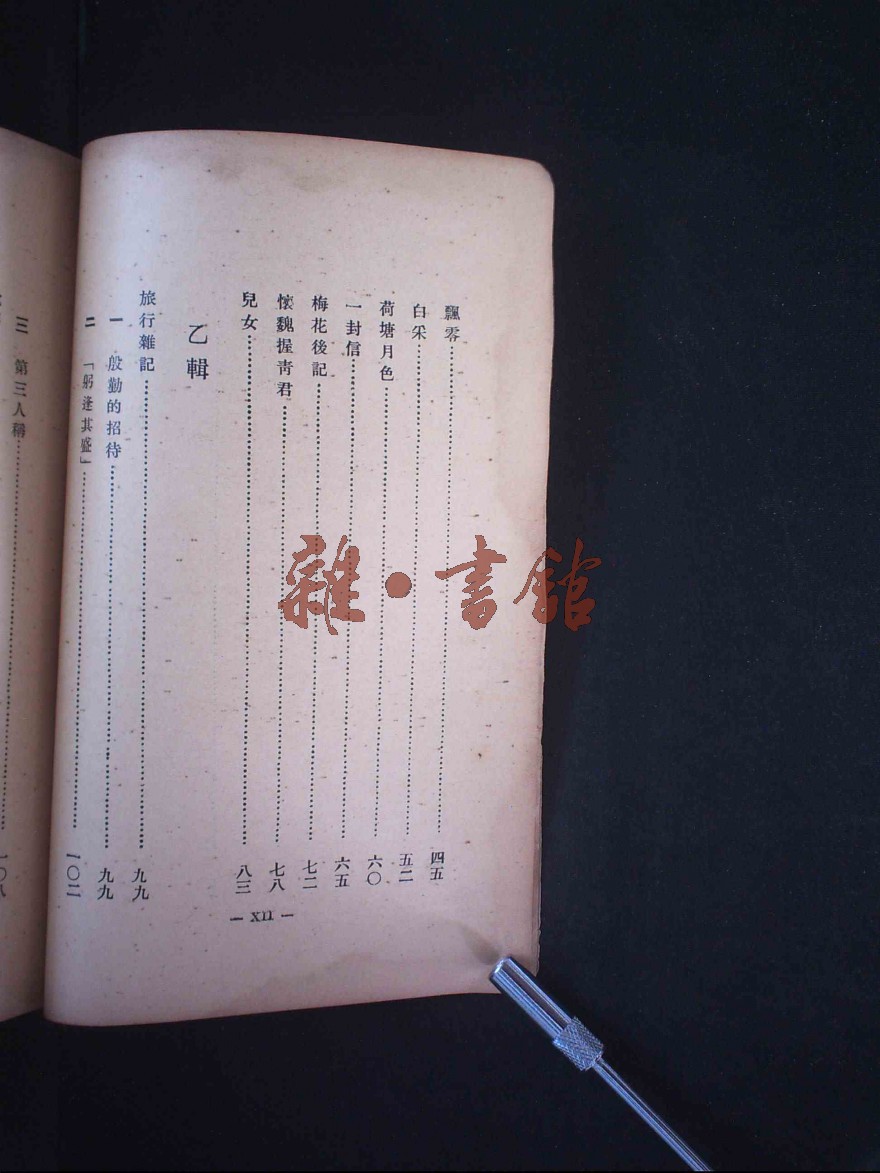 飄零……四五
白采……五二
荷塘月色……六〇
一封信……六五
梅花後記……七二
懷魏握青君……七八
兒女……八三
乙輯
旅行雜記……九九
一　殷勤的招待……九九
二　「躬逢其盛」……一〇二
三　第三人稱……一〇八
— XII —
雜·書館